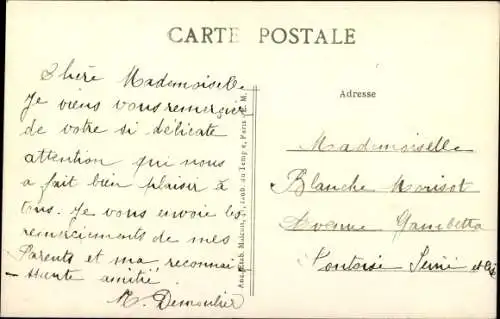 CARTE POSTALE
Chère Mademoiselle
Je viens vous remercier
de votre si délicate
attention qui nous
a fait bien plaisir à
tous. Je vous envoie les
remerciements de mes
Parents et ma reconnai-
-ssante amitié
M. Demoulier
47, Faub. du Temple, Paris - E. M.
Adresse
Mademoiselle
Blanche Morisot
Avenue Gambetta
Pontoise Seine et Oise